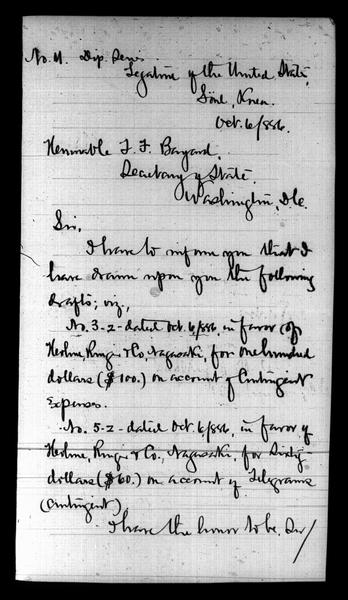 No. 11. Dip. Series
Legation of the United States,
Söul, Korea.
Oct. 6/886.
Honorable T. F. Bayard,
Secretary of State.
Washington, D.C.
Sir,
I have to inform you that I
have drawn upon you the following
drafts; viz.,
No. 3-z- dated Oct. 6/886, in favor of
Holme, Ringer & Co, Nagasaki, for one hundred
dollars ($100.) on account of Contingent
Expenses.
No. 5-z- dated Oct. 6/886, in favor of
Holme, Ringer & Co., Nagasaki, for Sixty-
dollars ($60.) on account of Telegrams
(Contingent)
I have the honor to be, Sir/